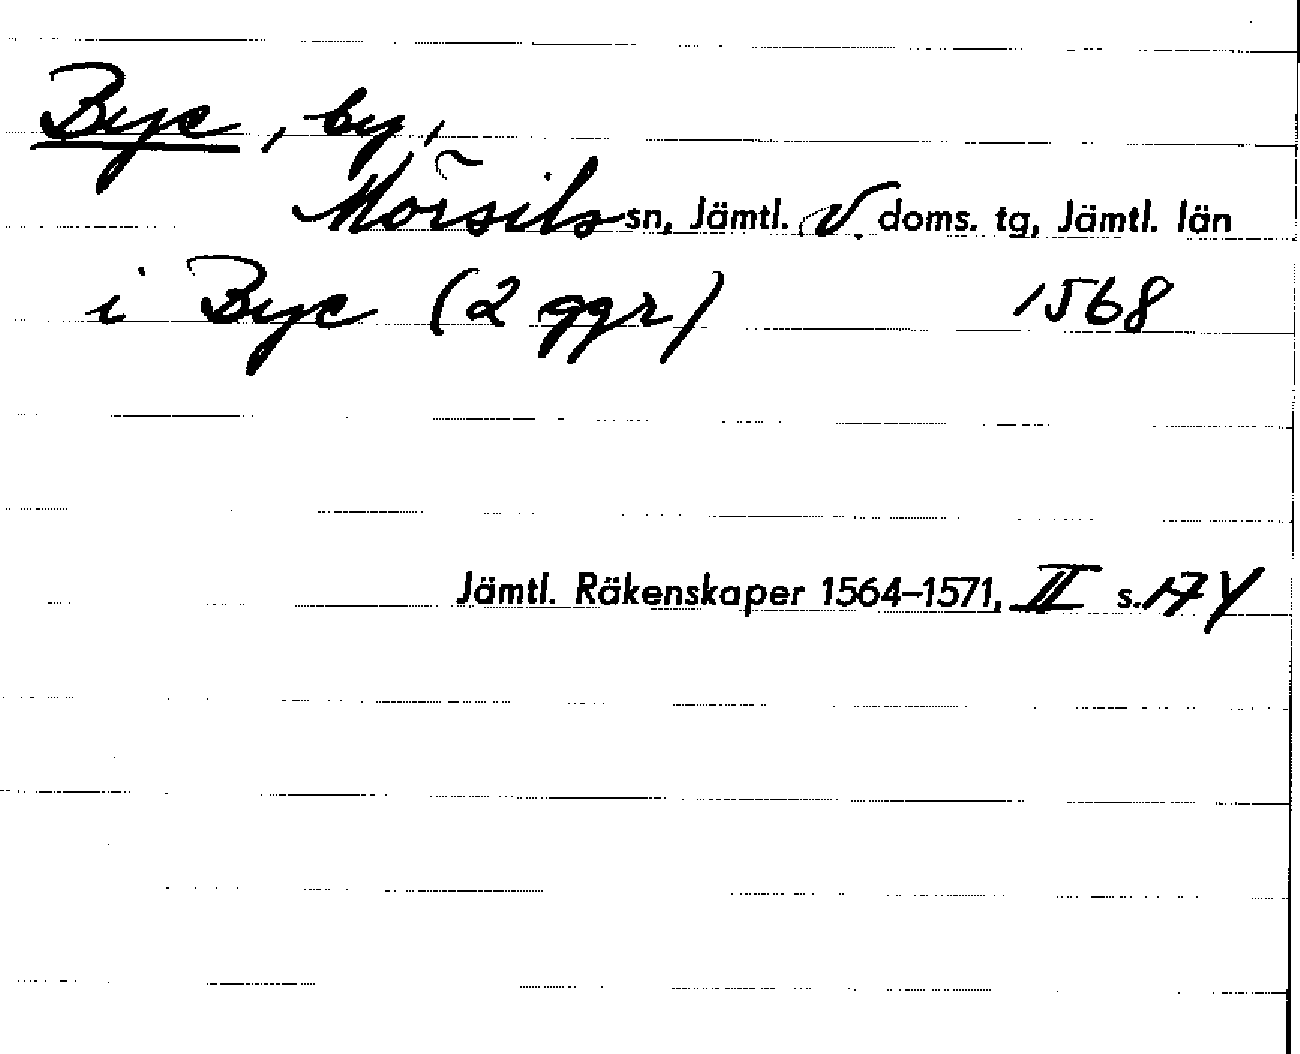 Bye, by,
Mörsils sn, Jämtl. V. doms. tg, Jämtl. län
i Bye (2 ggr) 1568
Jämtl. Räkenskaper 1564–1571, II s. 174